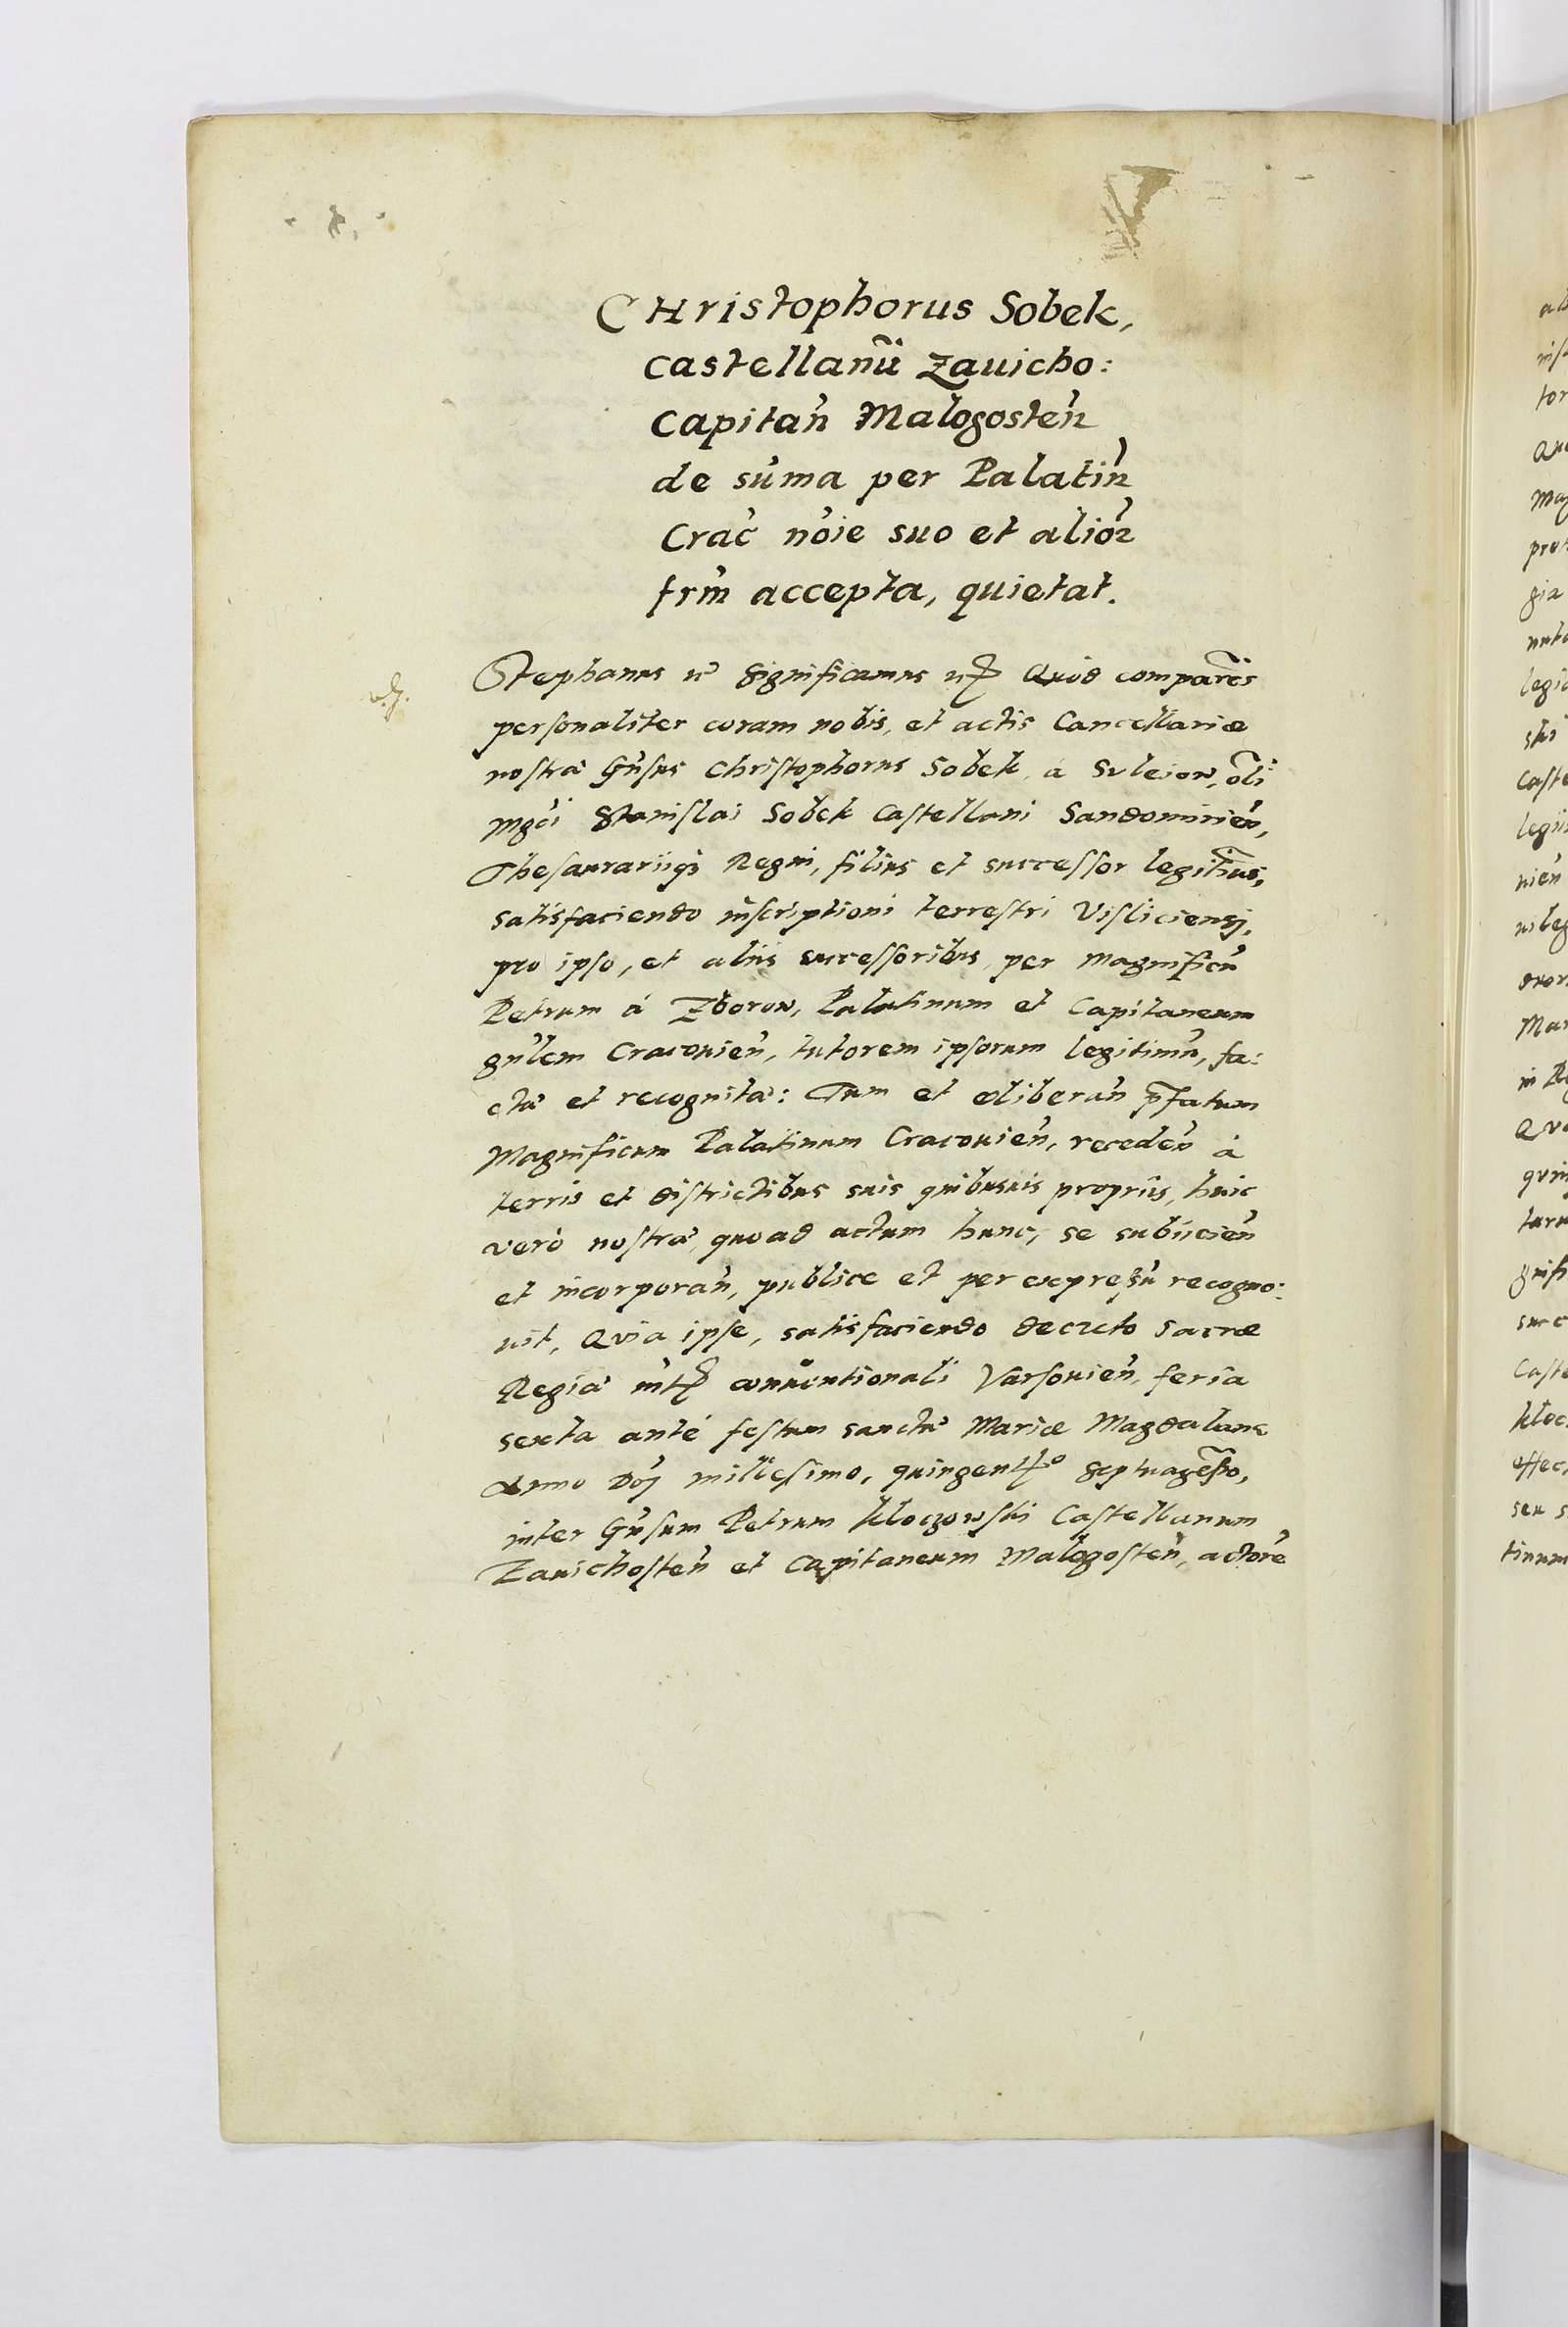 CHristophorus Sobek,
castellanũ Zauicho:
capitan̉ Malogosten̉
de sum̉a per Palatin̉
Crac̉ noỉe suo et alior̉
frm̉ accepta, quietat.
Stephanus &c Significamus &c Quod comparẽs
personaliter coram nobis, et actis Cancellariæ
nostræ Gn̉sus Christophorus Sobek à Suleiow, olĩ
Mgcỉ Stanislai Sobek Castellani Sandomirien̉,
Thesaurariiq₃ Regni, filius et successor legitĩus,
satisfaciendo inscriptioni terrestri Visliciensj,
pro ipso, et aliis successoribus, per Magnificủ
Petrum à Zborow, Palatinum et Capitaneum
gn̉lem Cracouien̉, tutorem ipsorum legitimủ, fa:
ctæ et recognitæ: Tum et eliberan̉ p̃fatum
Magnificum Palatinum Cracouien̉, receden̉ à
terris et districtibus suis quibusuis propriis, huic
verò nostræ, quoad actum hunc, se subiicien̉
et incorporan̉, publice et per expressủ recogno:
uit, Quia ipse, satisfaciendo decreto Sacræ
Regiæ conuentionali Varsouien̉, feria
sexta antè festum sanctæ Mariæ Magdalenæ
Anno Dnj̉ millesimo, quingent⁰ septuagesỉo,
inter Gn̉sum Petrum Kloczowski Castellanum
Zauichosten̉ et Capitaneum Malogosten̉, actorẻ